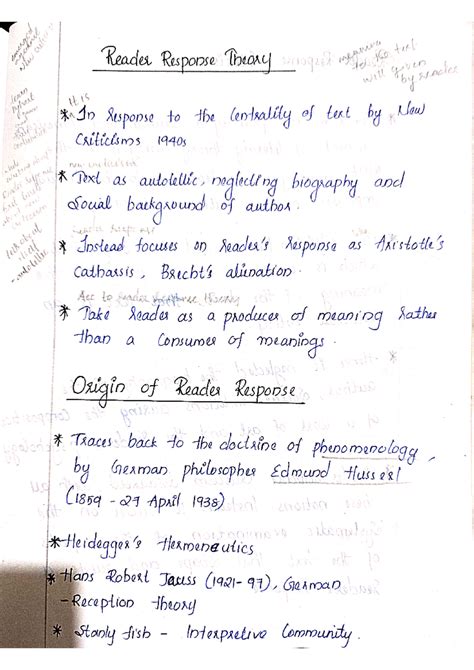 Reader Response Theory
meaning
to the text
will given
by reader
It is
* In response to the Centrality of text by New
Criticisms 1940s
new criticism
* Text as autotellic, neglecting biography and
Social background of author.
* Instead focuses on reader's response as Aristotle's
Catharsis, Brecht's alienation.
Acc to reader response theory
* Take reader as a producer of meaning rather
than a Consumer of meanings.
Origin of Reader Response
* Traces back to the doctrine of phenomenology,
by German philosopher Edmund Husserl
(1859 - 27 April 1938)
* Heidegger's Hermeneutics
* Hans Robert Jauss (1921-97), German
- Reception theory
* Stanly fish - Interpretive Community.